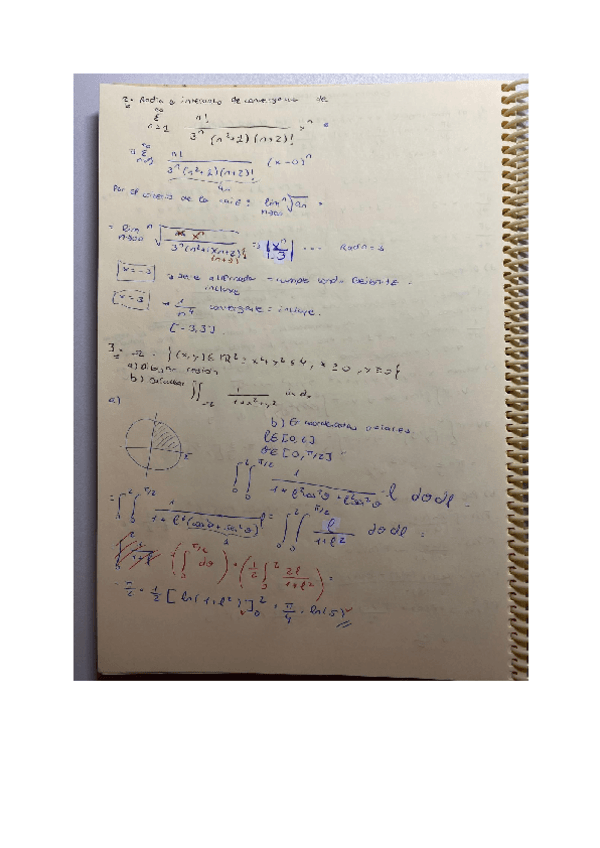 2. Radio e intervalo de convergencia de
∞ Σ n=1 n! / 3^n (n²+1)(n+2)! x^n
∞ Σ n=1 n! / 3^n (n²+1)(n+2)! (x-0)^n
an
Por el criterio de la raíz: lim n→∞ ⁿ√an =
= lim n→∞ ⁿ√ x^n / 3^n (n²+1)(n+2) ⇒ Radio = 3
x=-3 → serie alternada cumple
incluye
x=3 → convergente = incluye.
[-3,3]
3. Ω = {(x,y) ∈ ℝ² = x²+y² ≤ 4, x ≥ 0, y ≥ 0}
a) Dibujar región
b) Calcular ∬Ω 1 / 1+x²+y² dx
a)
b) En coordenadas polares.
ρ ∈ [0,2]
θ ∈ [0, π/2]
∫₀² ∫₀^π/2 1 / 1+ρ²cos²θ+ρ²sen²θ · ρ dθ dρ
= ∫₀² ∫₀^π/2 1 / 1+ρ²(cos²θ+sen²θ) ρ = ∫₀² ∫₀^π/2 ρ / 1+ρ² dθ dρ =
(∫₀^π/2 dθ) · (1/2 ∫₀² 2ρ / 1+ρ²) =
= π/2 · 1/2 [ln(1+ρ²)]₀² = π/4 · ln(5)